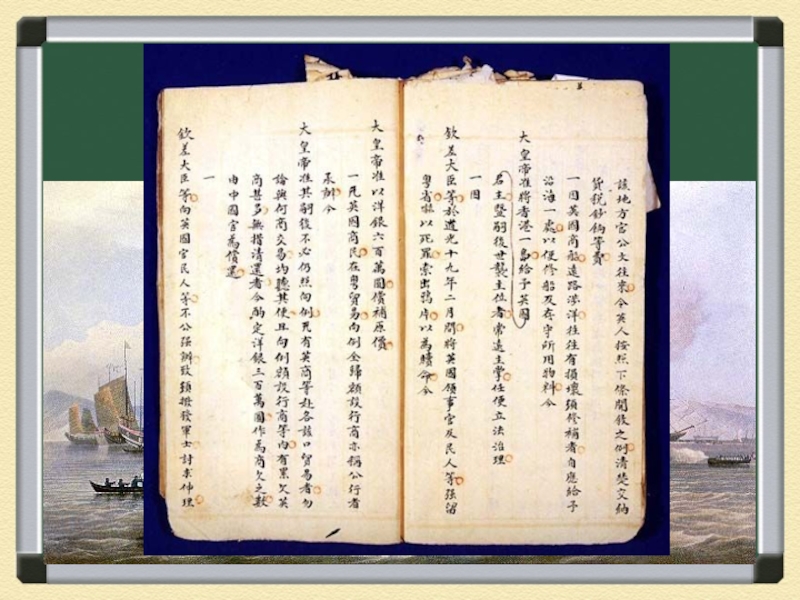 該地方官公文往來令英人按照下條開敘之例清楚交納
貨稅鈔餉等費
一因英國商船遠路涉洋往往有損壞須修補者自應給予
沿海一處以便修船及存守所用物料今
大皇帝准將香港一島給予英國
君主暨嗣後世襲主位者常遠主掌任便立法治理
一因
欽差大臣等於道光十九年二月間將英國領事官及民人等強留
粵省嚇以死罪索出鴉片以為贖命今
大皇帝准以洋銀六百萬圓償補原價
一凡英國商民在粵貿易向例全歸額設行商亦稱公行者
承辦今
大皇帝准其嗣後不必仍照向例凡有英商等赴各該口貿易者勿
論與何商交易均聽其便且向例額設行商等內有累欠英
商甚多無措清還者今酌定洋銀三百萬圓作為商欠之數
由中國官為償還
一
欽差大臣等向英國官民人等不公強辦致須撥發軍士討求伸理